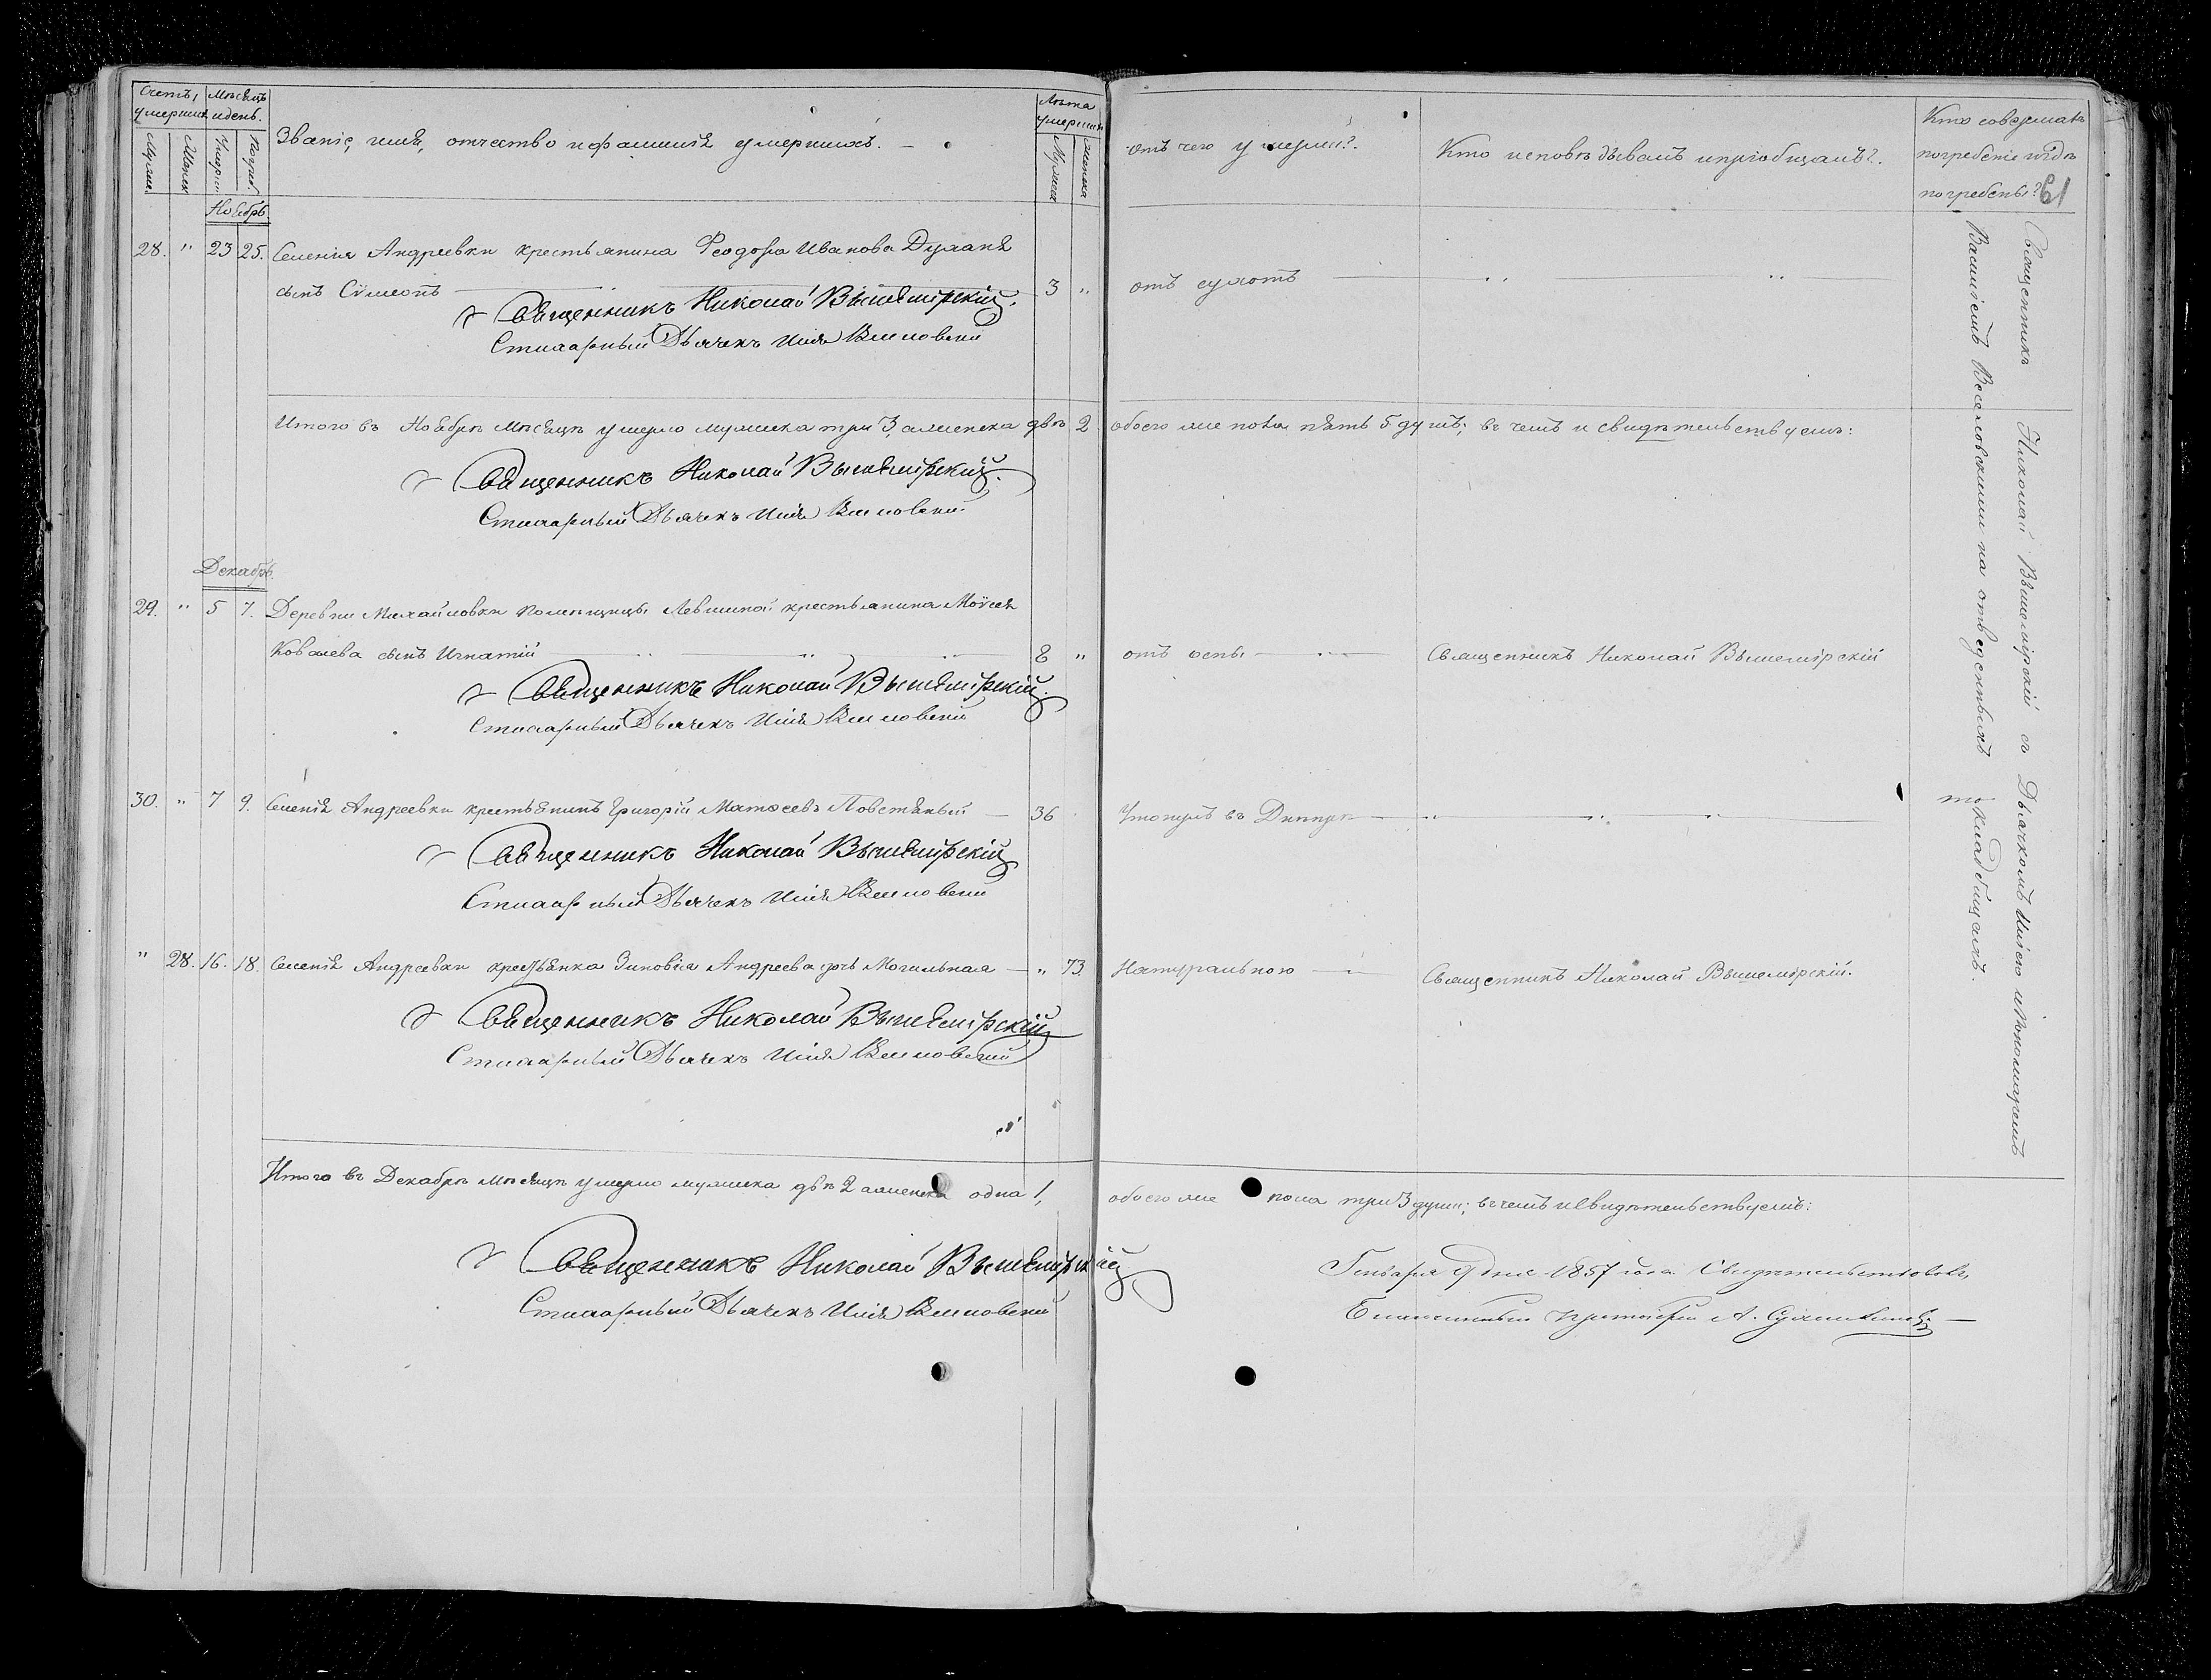 Счетъ умершихъ
Мѣсяцъ и день.
Званіе, имя, отчество и фамилія умершихъ.
Лѣта умершихъ
Отъ чего умерли?
Кто исповѣдывалъ и пріобщалъ?
Кто совершалъ погребеніе и гдѣ погребены?
61
Мужес.
Женск.
Умерли
Погреб.
Мужеска
Женска
Ноябрь
28. " 23 25. Селенія Андреевки крестьянина Ѳеодора Иванова
сынъ Сѵмеонъ 3 " отъ сухотъ
Священникъ Николай Вышемірскій.
Стихарный Дьячекъ Илія
Итого въ Ноябрѣ мѣсяцѣ умерло мужеска три 3, а женска двѣ 2 обоего же пола пять 5 душъ; въ чемъ и свидѣтельствуемъ:
Священникъ Николай Вышемірскій.
Стихарный Дьячекъ Илія
Декабрь
29. " 5 7. Деревни Михайловки помѣщицы Левшиной крестьянина Моѵсея
Ковалева сынъ Игнатій 8 " отъ оспы Священникъ Николай Вышемірскій
Священникъ Николай Вышемірскій.
Стихарный Дьячекъ Илія
30. " 7 9. Селенія Андреевки крестьянинъ Григорій Матѳеевъ Повстяный 36 Утонулъ въ Днѣпрѣ
Священникъ Николай Вышемірскій
Стихарный Дьячекъ Илія
" 28. 16. 18. Селенія Андреевки крестьянка Зиновія Андреева дочь Могильная " 73. Натуральною Священникъ Николай Вышемірскій.
Священникъ Николай Вышемірскій
Стихарный Дьячекъ Илія
Итого въ Декабрѣ мѣсяцѣ умерло мужеска двѣ 2 а женска одна 1, обоего же пола три 3 души; въ чемъ и свидѣтельствуемъ:
Священникъ Николай Вышемірскій
Стихарный Дьячекъ Илія
Генваря 9 дня 1857 года Свидѣтельствовалъ,
Благочинный Протоіерей А.
Священникъ Николай Вышемірскій съ Дьячкомъ Иліею и Пономаремъ
Василіемъ Веселовскими на отведенныхъ
то кладбищахъ.